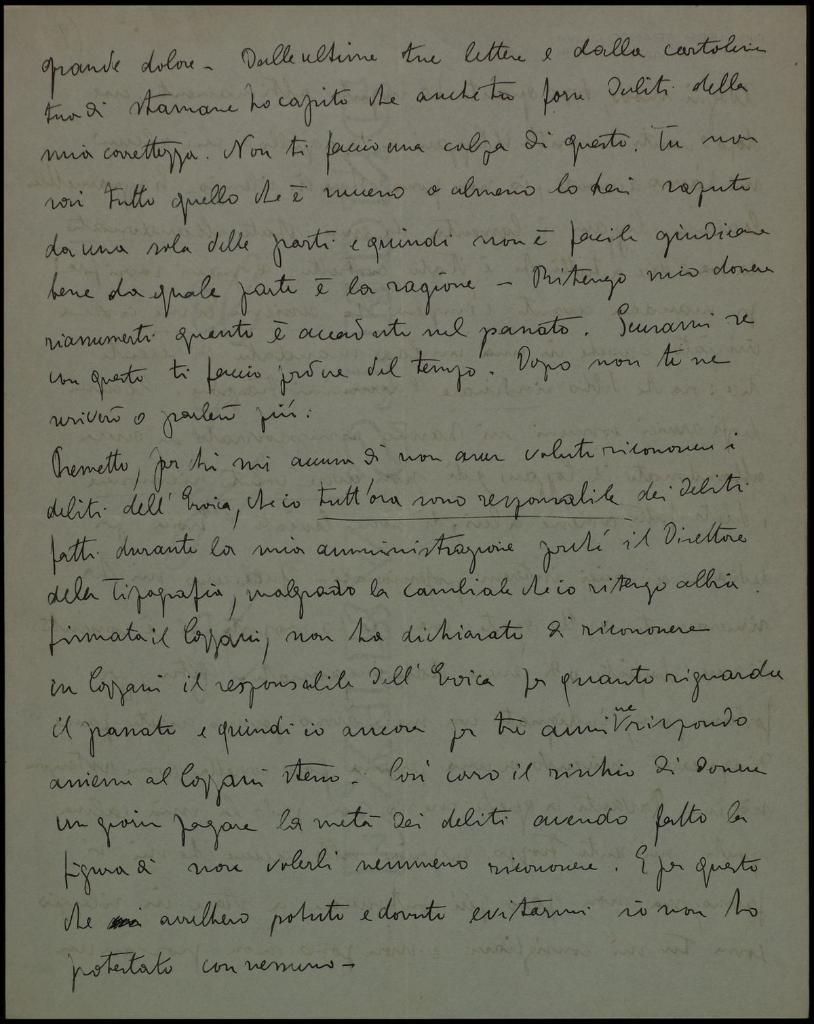 grande dolore – Dalle ultime tue lettere e dalla cartolina
tua di stamane ho capito che anche tu forse dubiti della
mia correttezza. Non ti faccio una colpa di questo. Tu non
sai tutto quello che è successo o almeno lo hai saputo
da una sola delle parti e quindi non è facile giudicare
bene da quale parte è la ragione – Ritengo mio dovere
riassumerti quanto è accaduto nel passato. Scusami se
con questo ti faccio perdere del tempo. Dopo non te ne
scriverò o parlerò più:
Premetto, per chi mi accusa di non aver voluto riconoscere i
debiti dell'Eroica, che io tutt'ora sono responsabile dei debiti
fatti durante la mia amministrazione perché il Direttore
della Tipografia, malgrado la cambiale che io ritengo abbia
firmata il Cozzani, non ha dichiarato di riconoscere
in Cozzani il responsabile dell'Eroica per quanto riguarda
il passato e quindi io ancora per tre anni ne rispondo
assieme al Cozzani stesso – Così corro il rischio di dovere
un giorno pagare la metà dei debiti avendo fatto la
figura di non volerli nemmeno riconoscere. E per questo
che avrebbero potuto e dovuto evitarmi io non ho
protestato con nessuno –